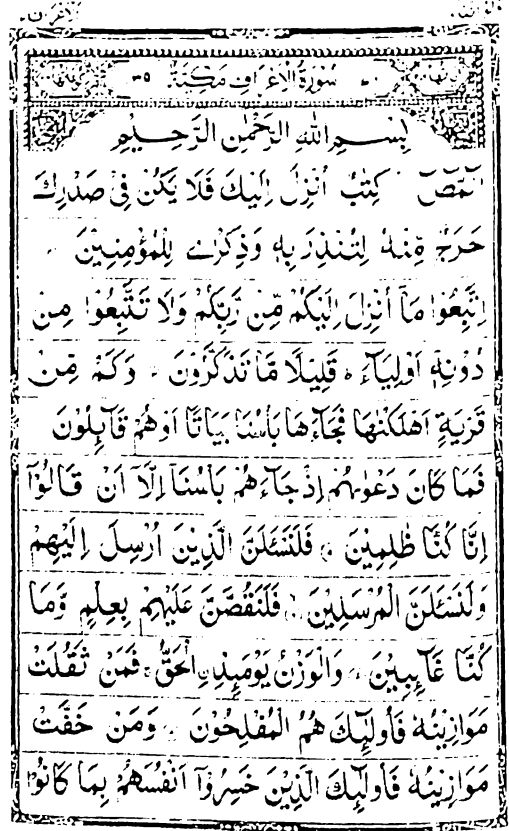 الاعراف
سُوْرَةُ الْاَعْرَافِ مَكِّيَّةٌ ٣٥
بِسْمِ اللهِ الرَّحْمٰنِ الرَّحِيْمِ
الٓمّٓصٓ كِتٰبٌ اُنْزِلَ اِلَيْكَ فَلَا يَكُنْ فِيْ صَدْرِكَ
حَرَجٌ مِّنْهُ لِتُنْذِرَ بِهٖ وَذِكْرٰى لِلْمُؤْمِنِيْنَ
اِتَّبِعُوْا مَآ اُنْزِلَ اِلَيْكُمْ مِّنْ رَّبِّكُمْ وَلَا تَتَّبِعُوْا مِنْ
دُوْنِهٖٓ اَوْلِيَآءَ قَلِيْلًا مَّا تَذَكَّرُوْنَ وَكَمْ مِّنْ
قَرْيَةٍ اَهْلَكْنٰهَا فَجَآءَهَا بَاْسُنَا بَيَاتًا اَوْ هُمْ قَآئِلُوْنَ
فَمَا كَانَ دَعْوٰىهُمْ اِذْ جَآءَهُمْ بَاْسُنَآ اِلَّآ اَنْ قَالُوْٓا
اِنَّا كُنَّا ظٰلِمِيْنَ فَلَنَسْـَٔلَنَّ الَّذِيْنَ اُرْسِلَ اِلَيْهِمْ
وَلَنَسْـَٔلَنَّ الْمُرْسَلِيْنَ فَلَنَقُصَّنَّ عَلَيْهِمْ بِعِلْمٍ وَّمَا
كُنَّا غَآئِبِيْنَ وَالْوَزْنُ يَوْمَئِذِ ِۨالْحَقُّ فَمَنْ ثَقُلَتْ
مَوَازِيْنُهٗ فَاُولٰٓئِكَ هُمُ الْمُفْلِحُوْنَ وَمَنْ خَفَّتْ
مَوَازِيْنُهٗ فَاُولٰٓئِكَ الَّذِيْنَ خَسِرُوْٓا اَنْفُسَهُمْ بِمَا كَانُوْا